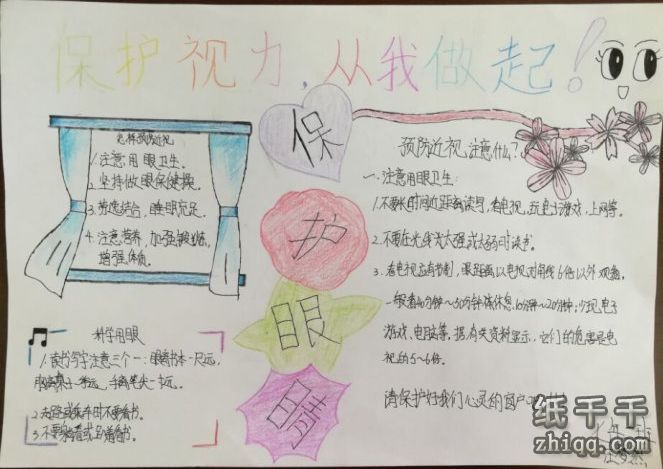 保护视力,从我做起!
怎样预防近视
1.注意用眼卫生。
2.坚持做眼保健操。
3.劳逸结合,睡眠充足。
4.注意营养,加强锻炼,
增强体质。
科学用眼
1.读书写字注意三个一:眼离书本一尺远,
胸离桌子一拳远,手离笔尖一寸远。
2.走路或乘车时不要看书。
3.不要躺着或趴着看书。
保
护
眼
睛
预防近视,注意什么?
一.注意用眼卫生:
1.不要长时间近距离读书,看电视,玩电子游戏,上网等。
2.不要在光线太强或太弱时读书。
3.看电视应有节制,眼距离以电视对角线6倍以外观看。
一般看40分钟~50分钟休息10分钟~20分钟,少玩电子
游戏、电脑等。据有关资料显示,它们的危害是电
视的5~6倍。
请保护好我们心灵的窗户
纸千千
zhiqq.com